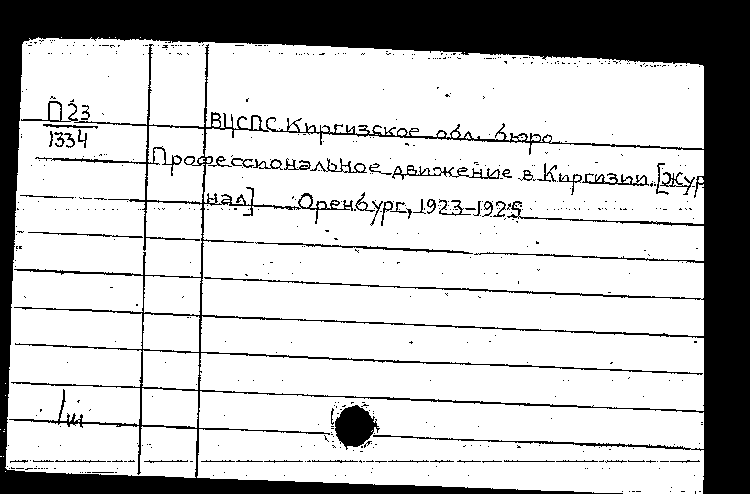 П23
1334
ВЦСПС. Киргизское обл. бюро
Профессиональное движение в Киргизии. [Жур
нал] Оренбург, 1923-1925